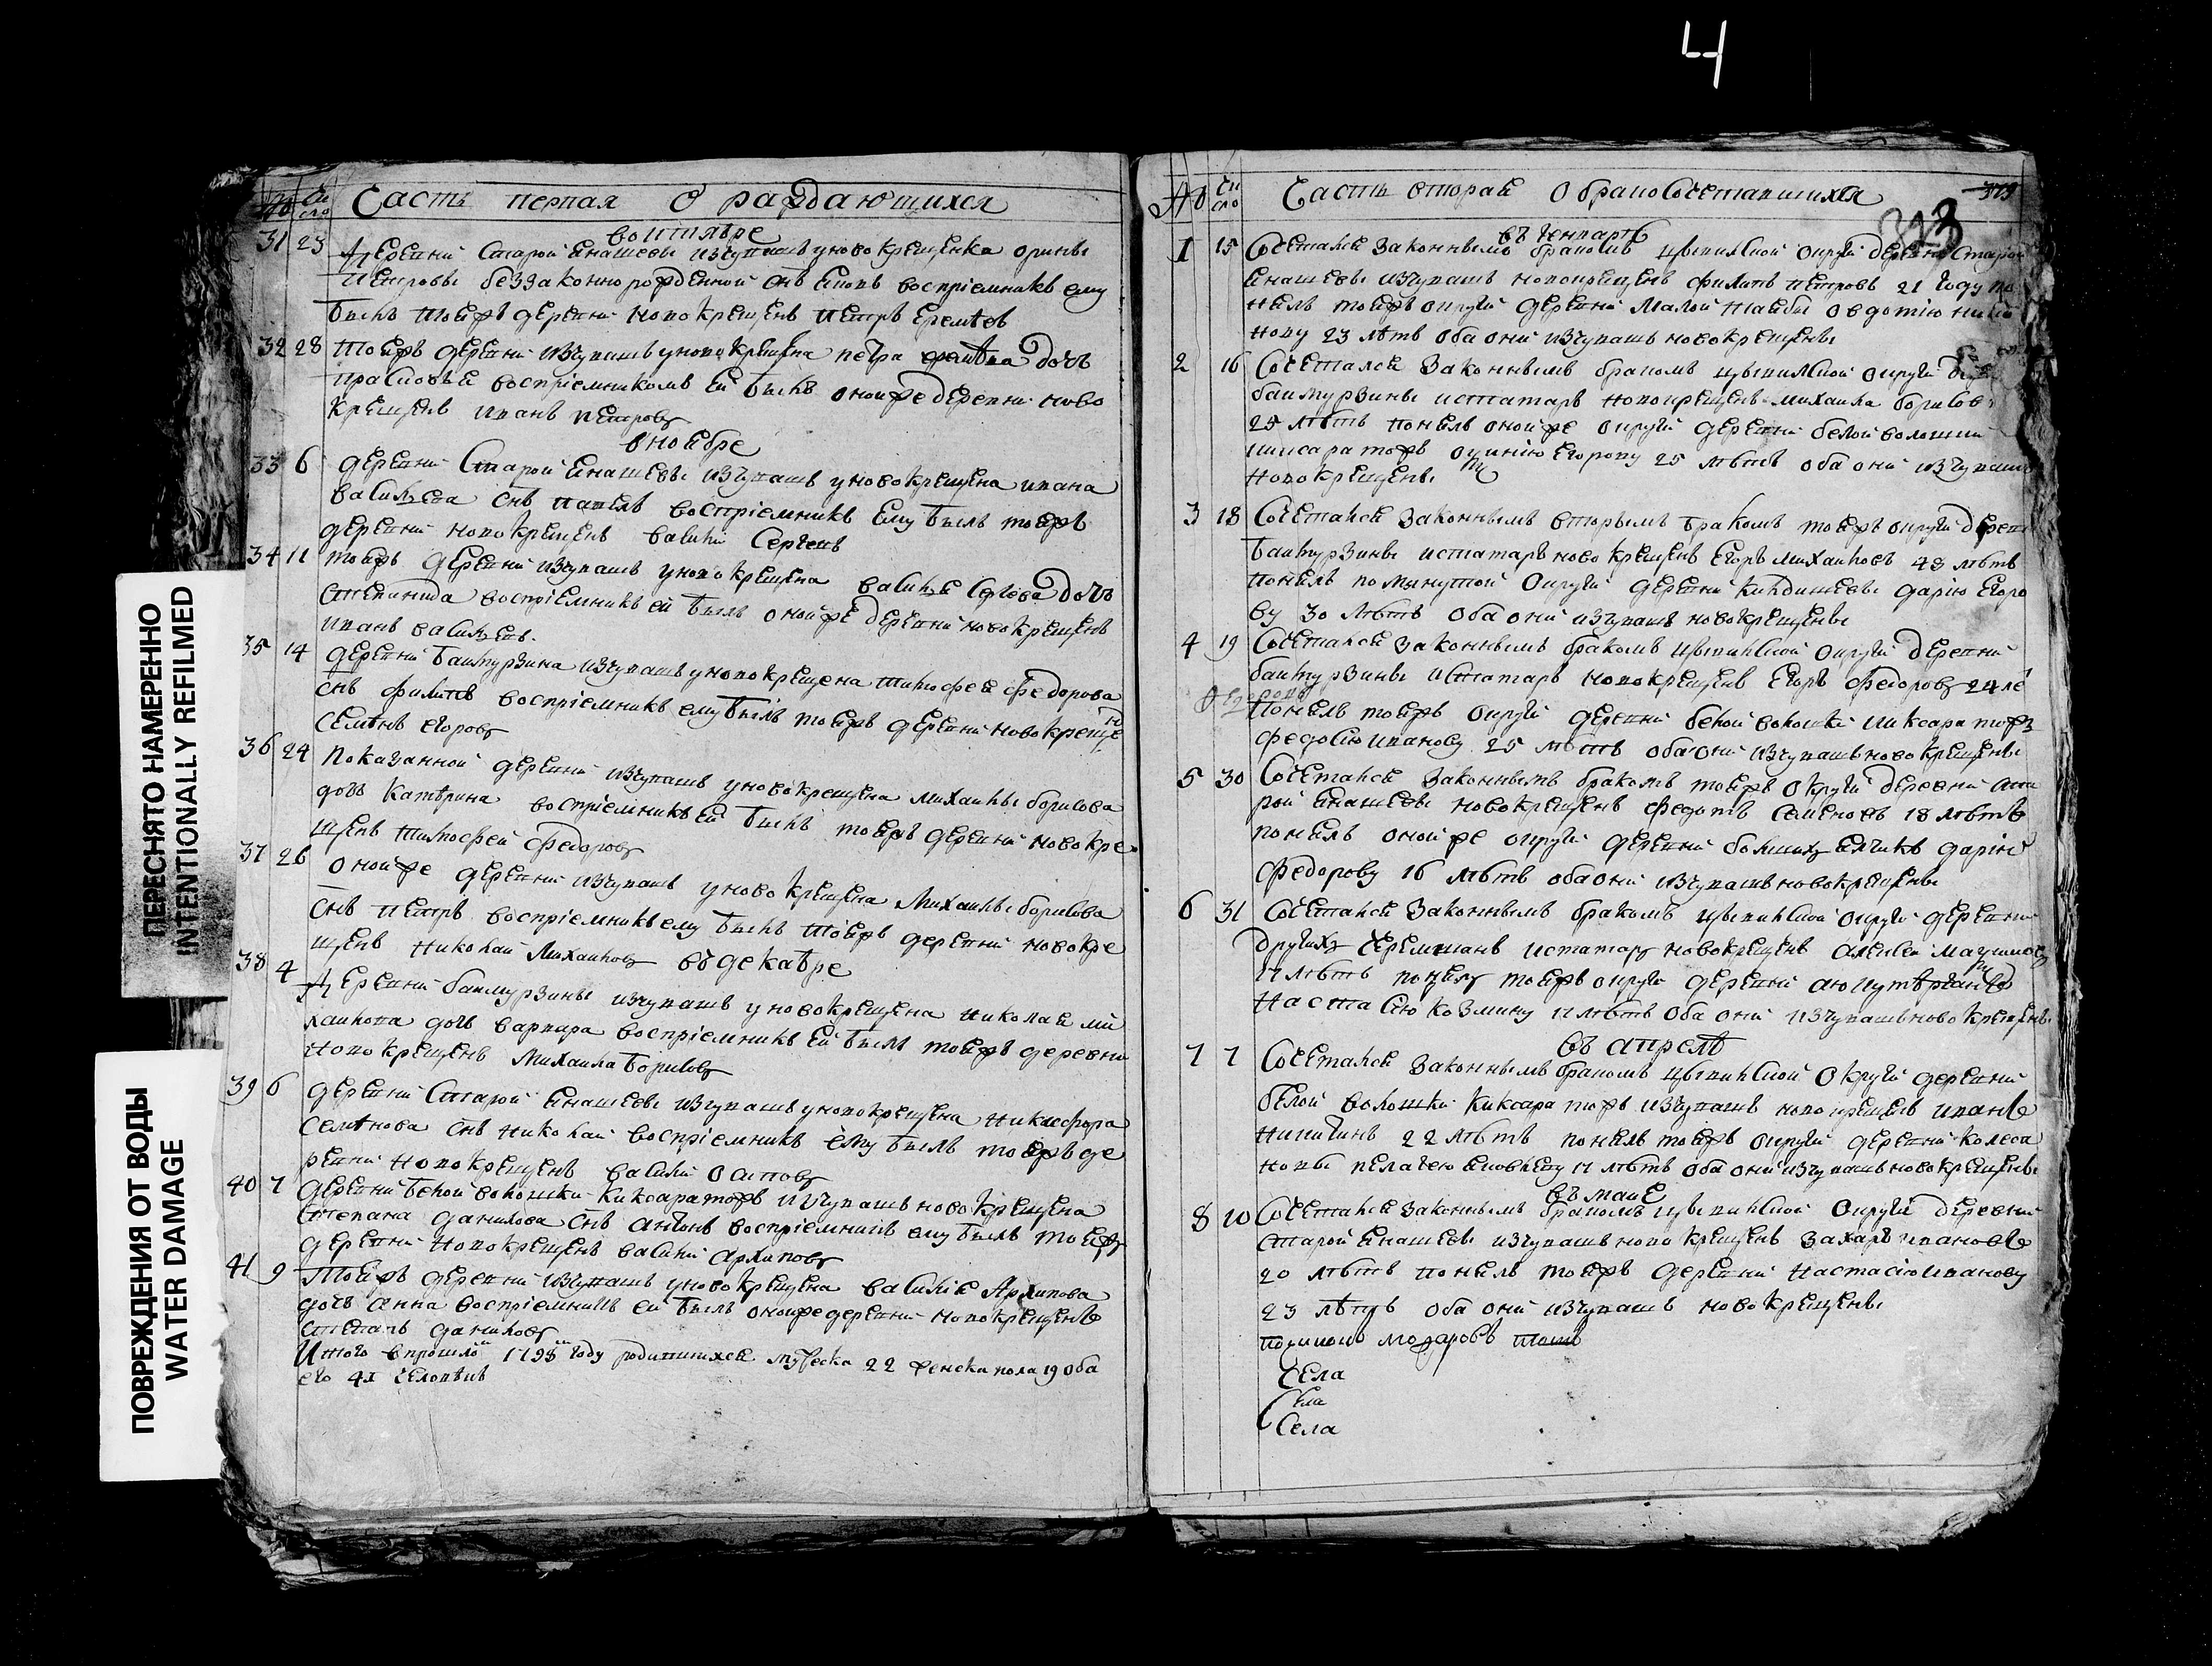 4
ПЕРЕСНЯТО НАМЕРЕННО
INTENTIONALLY REFILMED
ПОВРЕЖДЕНИЯ ОТ ВОДЫ
WATER DAMAGE
№ Число Часть первая о раждающихся
31 23 деревни Старой Янашевы изчувашъ у новокрещенка орины
Петровы беззаконнорожденной снъ воспріемникъ ему
былъ тояжъ деревни новокрещенъ Петръ Еремѣевъ
32 28 тояжъ деревни изчувашъ у новокрещена петра дочь
Прасковья воспріемникомъ ей былъ оной же деревни ново
крещенъ иванъ петровъ
в ноябре
33 6 деревни Старой Янашевы изчувашъ у новокрещена ивана
васильева снъ павелъ воспріемникъ ему былъ тояжъ
деревни новокрещенъ василий Сергеевъ
34 11 тояжъ деревни изчувашъ у новокрещена василья Сергеева дочь
Степанида воспріемникъ ей былъ оной же деревни новокрещенъ
иванъ васильевъ.
35 14 деревни баимурзина изчувашъ у новокрещена тимофея федорова
снъ филипъ воспріемникъ ему былъ тояжъ деревни новокреще
семенъ егоровъ
36 24 показанной деревни изчувашъ у новокрещена михаилы борисова
дочь катѣрина воспріемникъ ей былъ тояжъ деревни новокре
щенъ тимофей федоровъ
37 26 оной же деревни изчувашъ у новокрещена михаилы борисова
снъ петръ воспріемникъ ему былъ тояжъ деревни новокре
щенъ николай михаиловъ
въ декабре
38 4 деревни баимурзины изчувашъ у новокрещена николая ми
хаилова дочь варвара воспріемникъ ей былъ тояжъ деревни
новокрещенъ михаила борисовъ
39 6 деревни Старой Янашевы изчувашъ у новокрещена никифора
семенова снъ николай воспріемникъ ему былъ тояжъ де
ревни новокрещенъ василий осиповъ
40 7 деревни белой волошки киксара тожъ изчувашъ новокрещена
степана данилова снъ антонъ воспріемникъ ему былъ тояжъ
деревни новокрещенъ василий архиповъ
41 9 тояжъ деревни изчувашъ у новокрещена василія архипова
дочь анна воспріемникъ ей былъ оной же деревни новокрещенъ
степанъ даниловъ
Итого в прошлой году родившихся мужеска 22 женска пола 19 обо
его 41 человѣкъ
№ Число Часть вторая о бракосочетавшихся 379
323
въ генваре
1 15 Сочетался законнымъ бракомъ цывильской округи деревни старой
Янашевы изчувашъ новокрещенъ филипъ петровъ 21 году по
нялъ тояжъ округи деревни малой таябы овдотію
нову 23 лѣтъ оба они изчувашъ новокрещены
2 16 Сочетался законнымъ бракомъ цывильской округи
баимурзины истатаръ новокрещенъ михаила борисовъ
25 лѣтъ понялъ оной же округи деревни белой волошки
киксара тожъ егорову 25 лѣтъ оба они изчувашъ
новокрещены
3 18 Сочетался законнымъ вторымъ бракомъ тояжъ округи деревни
баимурзины истатаръ новокрещенъ егоръ михаиловъ 43 лѣтъ
понялъ помянутой округи деревни килдишевы дарію егоро
ву 30 лѣтъ оба они изчувашъ новокрещены
4 19 Сочетался законнымъ бракомъ цывильской округи деревни
баимурзины истатаръ новокрещенъ егоръ федоровъ 24 ле
понялъ тояжъ округи деревни белой волошки киксара тожъ
федосію иванову 25 лѣтъ оба они изчувашъ новокрещены
5 30 Сочетался законнымъ бракомъ тояжъ округи деревни ста
рой Янашевы новокрещенъ федотъ семеновъ 18 лѣтъ
понялъ оной же округи деревни большихъ яльчикъ дарію
федорову 16 лѣтъ оба они изчувашъ новокрещены
6 31 Сочетался законнымъ бракомъ цывильской округи деревни
другихъ черемшанъ истатаръ новокрещенъ алексей
17 лѣтъ понялъ тояжъ округи деревни
настасію козмину 17 лѣтъ оба они изчувашъ новокрещены
въ апрелѣ
7 7 Сочетался законнымъ бракомъ цывильской округи деревни
белой волошки киксара тожъ изчувашъ новокрещенъ иванъ
никитинъ 22 лѣтъ понялъ тояжъ округи деревни
пелагею яковлеву 17 лѣтъ оба они изчувашъ новокрещены
въ мае
8 10 Сочетался законнымъ бракомъ цывильской округи деревни
старой Янашевы изчувашъ новокрещенъ захаръ ивановъ
20 лѣтъ понялъ тояжъ деревни настасію иванову
23 лѣтъ оба они изчувашъ новокрещены
Села
Села
Села